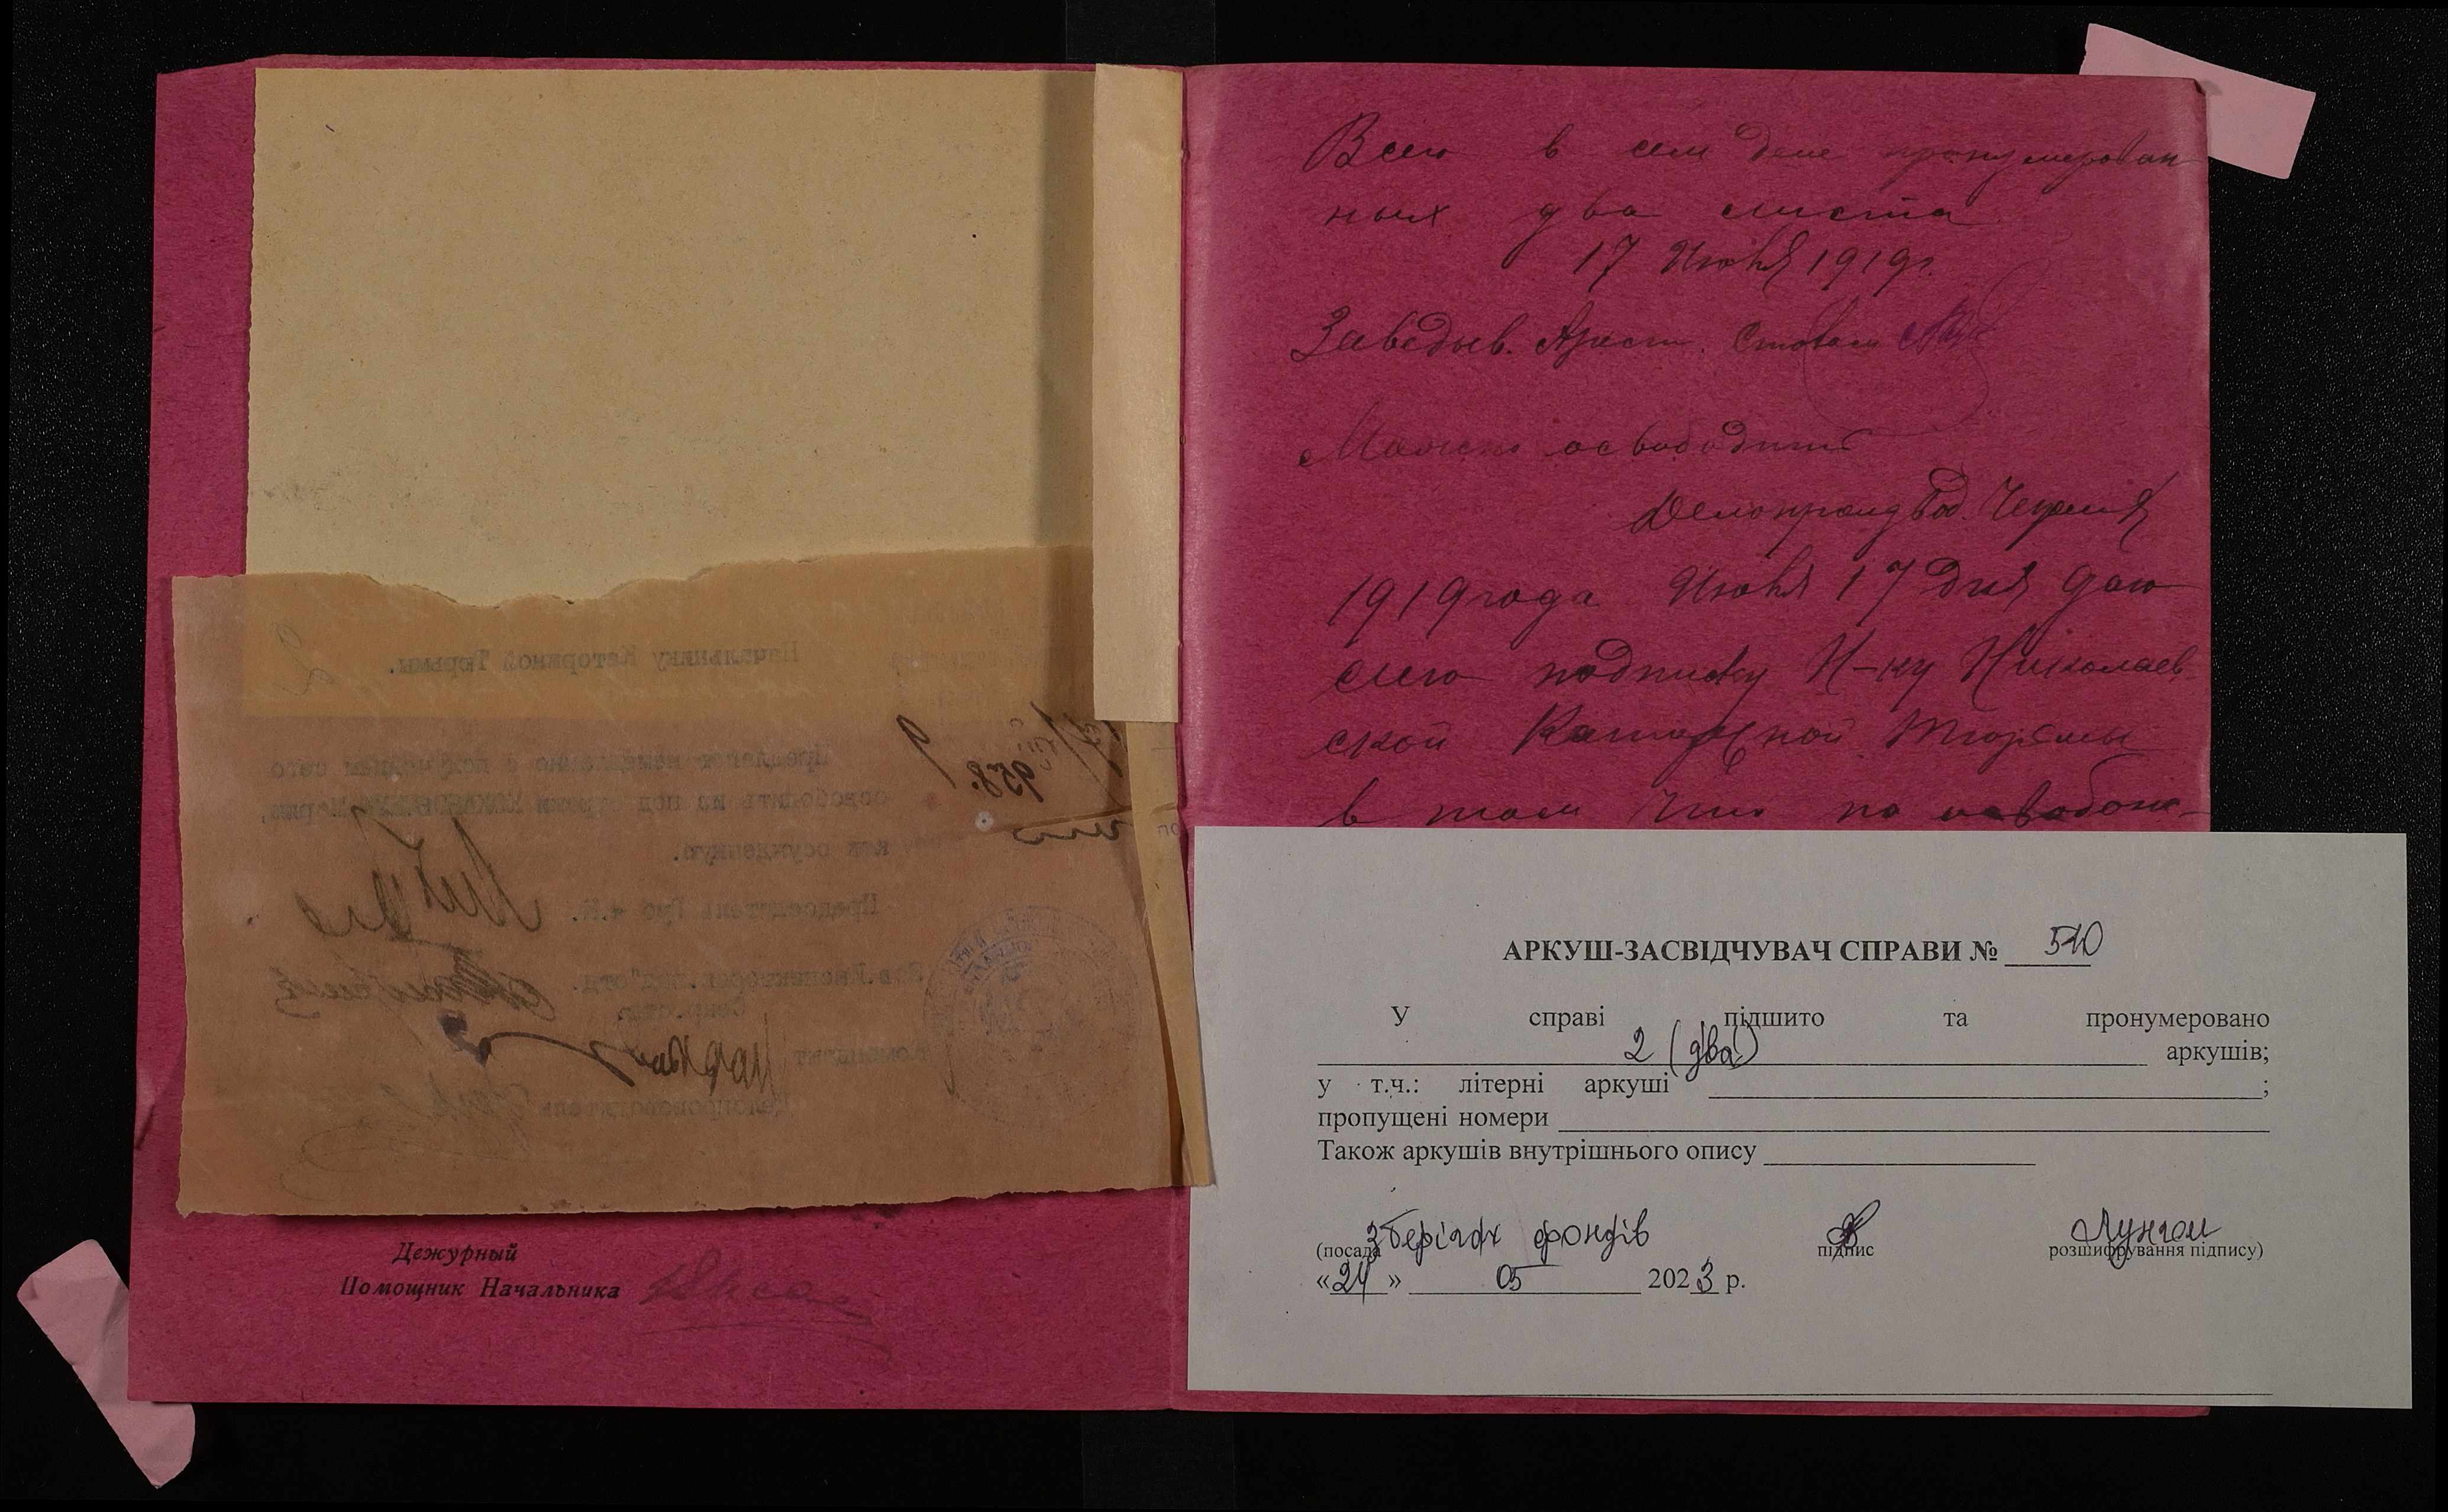 2
Начальнику Каторжной Тюрьмы.
958.
Предлагает немедленно с получением сего
освободить из под стражи
как осужденную.
Председатель Губ ч.К.
Секр.отд.
Комендант
Делопроизводитель
Дежурный
Помощник Начальника
Всего в сем деле пронумерован
ных два листа
17 Июня 1919г.
Заведыв. Арест. Столом
Можно освободить
Делопроизвод.
1919 года Июня 17 дня даю
сию подписку Н-ку Николаев
ской Каторжной Тюрьмы
в том что по освобож-
АРКУШ-ЗАСВІДЧУВАЧ СПРАВИ № 510
У справі підшито та пронумеровано
2 (два) аркушів;
у т.ч.: літерні аркуші ;
пропущені номери
Також аркушів внутрішнього опису
Зберігач фондів
(посада підпис розшифрування підпису)
«24» 05 2023 р.